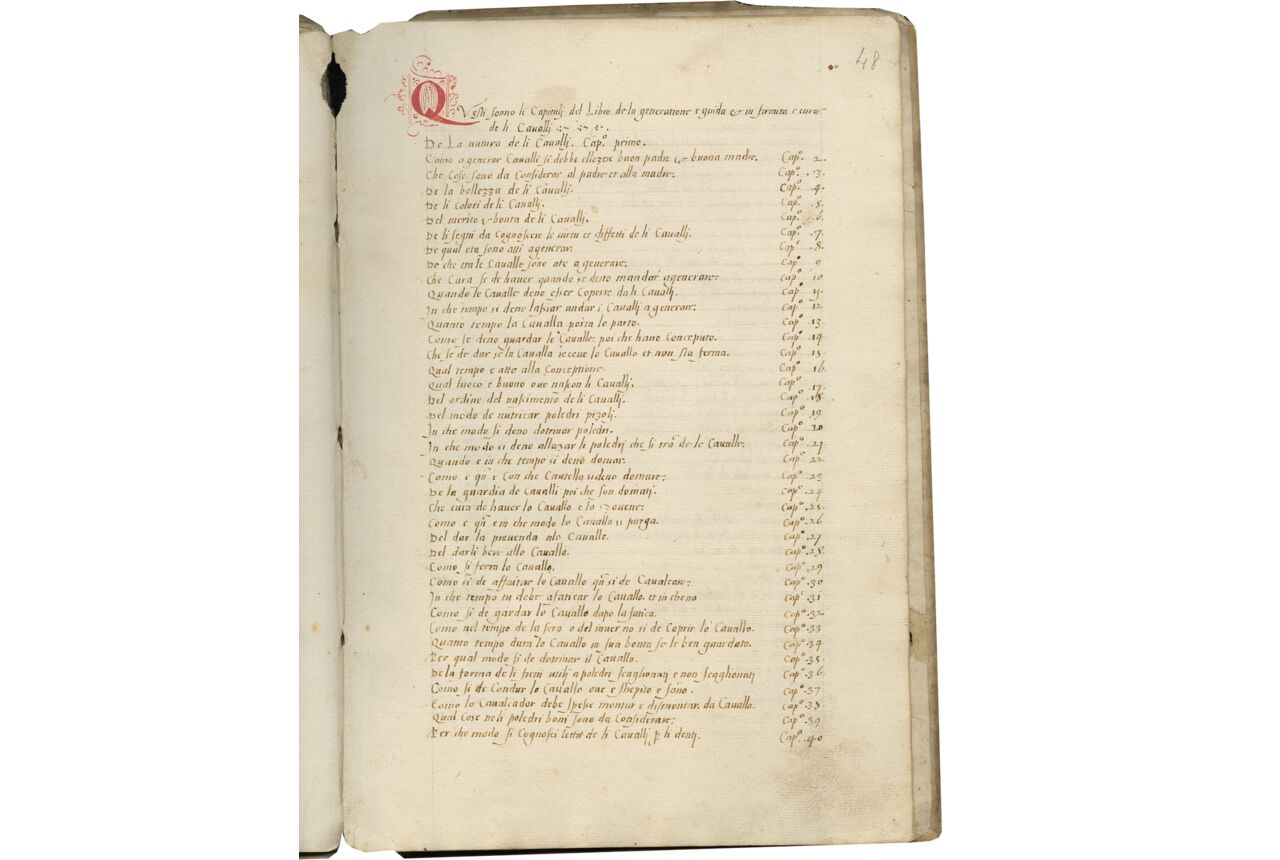 48
QVesti sonno li Capituli del Libro de la generatione e guida & in firmita e cura
de li Cavalli
De La natura de li Cavalli. Cap.º primo.
Como a generar Cavalli si debbe ellezere buon padre & buona madre. Cap.º 2.
Che Cose sono da Considerar al padre et alla madre. Cap.º 3.
De la bellezza de li Cavalli. Cap.º 4.
De li Colori de li Cavalli. Cap.º 5.
Del merito & bonta de li Cavalli. Cap.º 6.
De li segni da Cognoscere le virtu et diffetti de li Cavalli. Cap.º 7.
De qual eta sono atti a generar. Cap.º 8.
De che eta le Cavalle sono ate a generare. Cap.º 9
Che Cura se de haver quando se deno mandar a generare. Cap.º 10
Quando le Cavalle deno esser Coperte da li Cavalli. Cap.º 11.
In che tempo si deno lassiar andar i Cavalli a generar. Cap.º 12
Quanto tempo la Cavalla porta lo parto. Cap.º 13
Como se deno guardar le Cavalle poi che hano Conceputo. Cap.º 14
Che se de dar se la Cavalla receve lo Cavallo et non sta ferma. Cap.º 15
Qual tempo e atto alla Conceptione. Cap.º 16.
Qual luoco e buono ove nascon li Cavalli. Cap.º 17.
Del ordine del nascimento de li Cavalli. Cap.º 18.
Del modo de nutricar poledri pizoli. Cap.º 19
In che modo si deno dotrinar poledri. Cap.º 20
In che modo si deno allazar li poledri che si tra de le Cavalle. Cap.º 21
Quando e in che tempo si deno domar. Cap.º 22
Como e qñ e Con che Cautella si deno domare. Cap.º 23
De la guardia de Cavalli poi che son domati. Cap.º 24
Che cura de haver lo Cavallo e lo zovene. Cap.º 25.
Como e qñ e in che modo lo Cavallo si purga. Cap.º 26
Del dar la provenda alo Cavallo. Cap.º 27
Del darli bere allo Cavallo. Cap.º 28.
Como si ferra lo Cavallo. Cap.º 29
Como si de affaitar lo Cavallo qñ si de Cavalcare. Cap.º 30
In che tempo tu debe afaticar lo Cavallo. et in che no Cap.º 31
Como si de gardar lo Cavallo dapo la fatica. Cap.º 32
Como nel tempo de la sera o del inverno si de Coprir lo Cavallo. Cap.º 33
Quanto tempo dura lo Cavallo in sua bonta se le ben guardato. Cap.º 34
Per qual modo si de dotrinar il Cavallo. Cap.º 35.
De la forma de li freni utili a poledri scaglionati e non scaglionati Cap.º 36
Como si de Condur lo Cavallo ove e strepito e sono. Cap.º 37
Como lo Cavalcador debe spesse montar e dismontar da Cavallo. Cap.º 38.
Qual Cose neli poledri boni sono da Considerare. Cap.º 39
Per che modo si Cognosci letta de li Cavalli p li denti. Cap.º 40